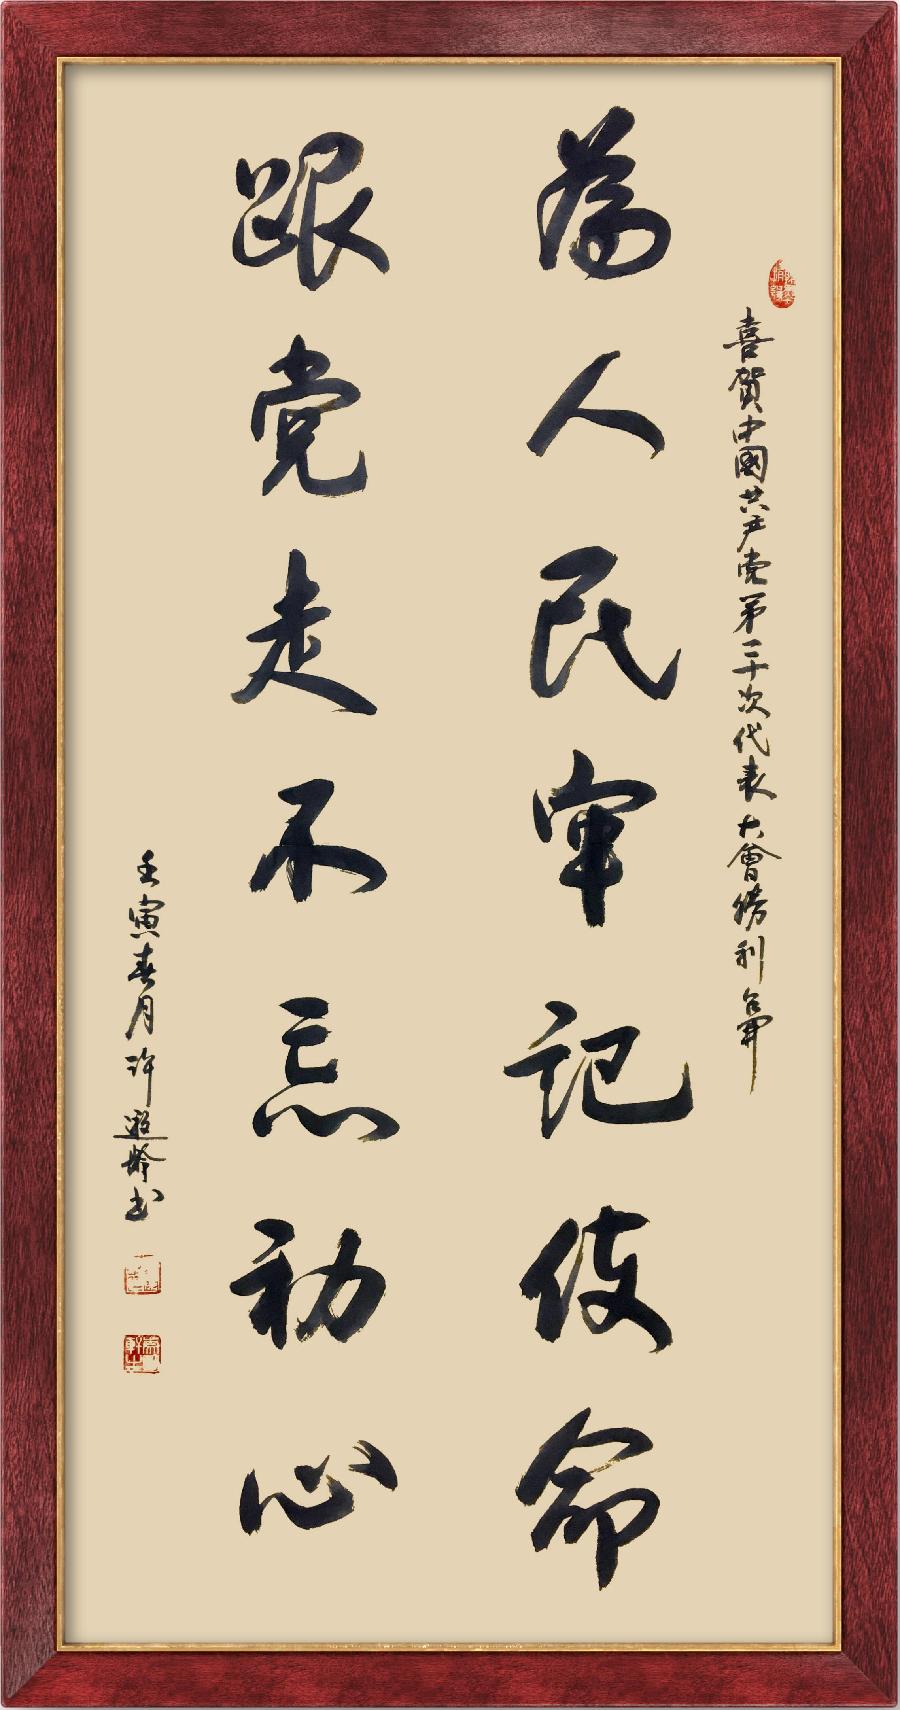 喜贺中國共产党第二十次代表大會勝利召開
为人民牢记使命
跟党走不忘初心
壬寅春月许遐龄书